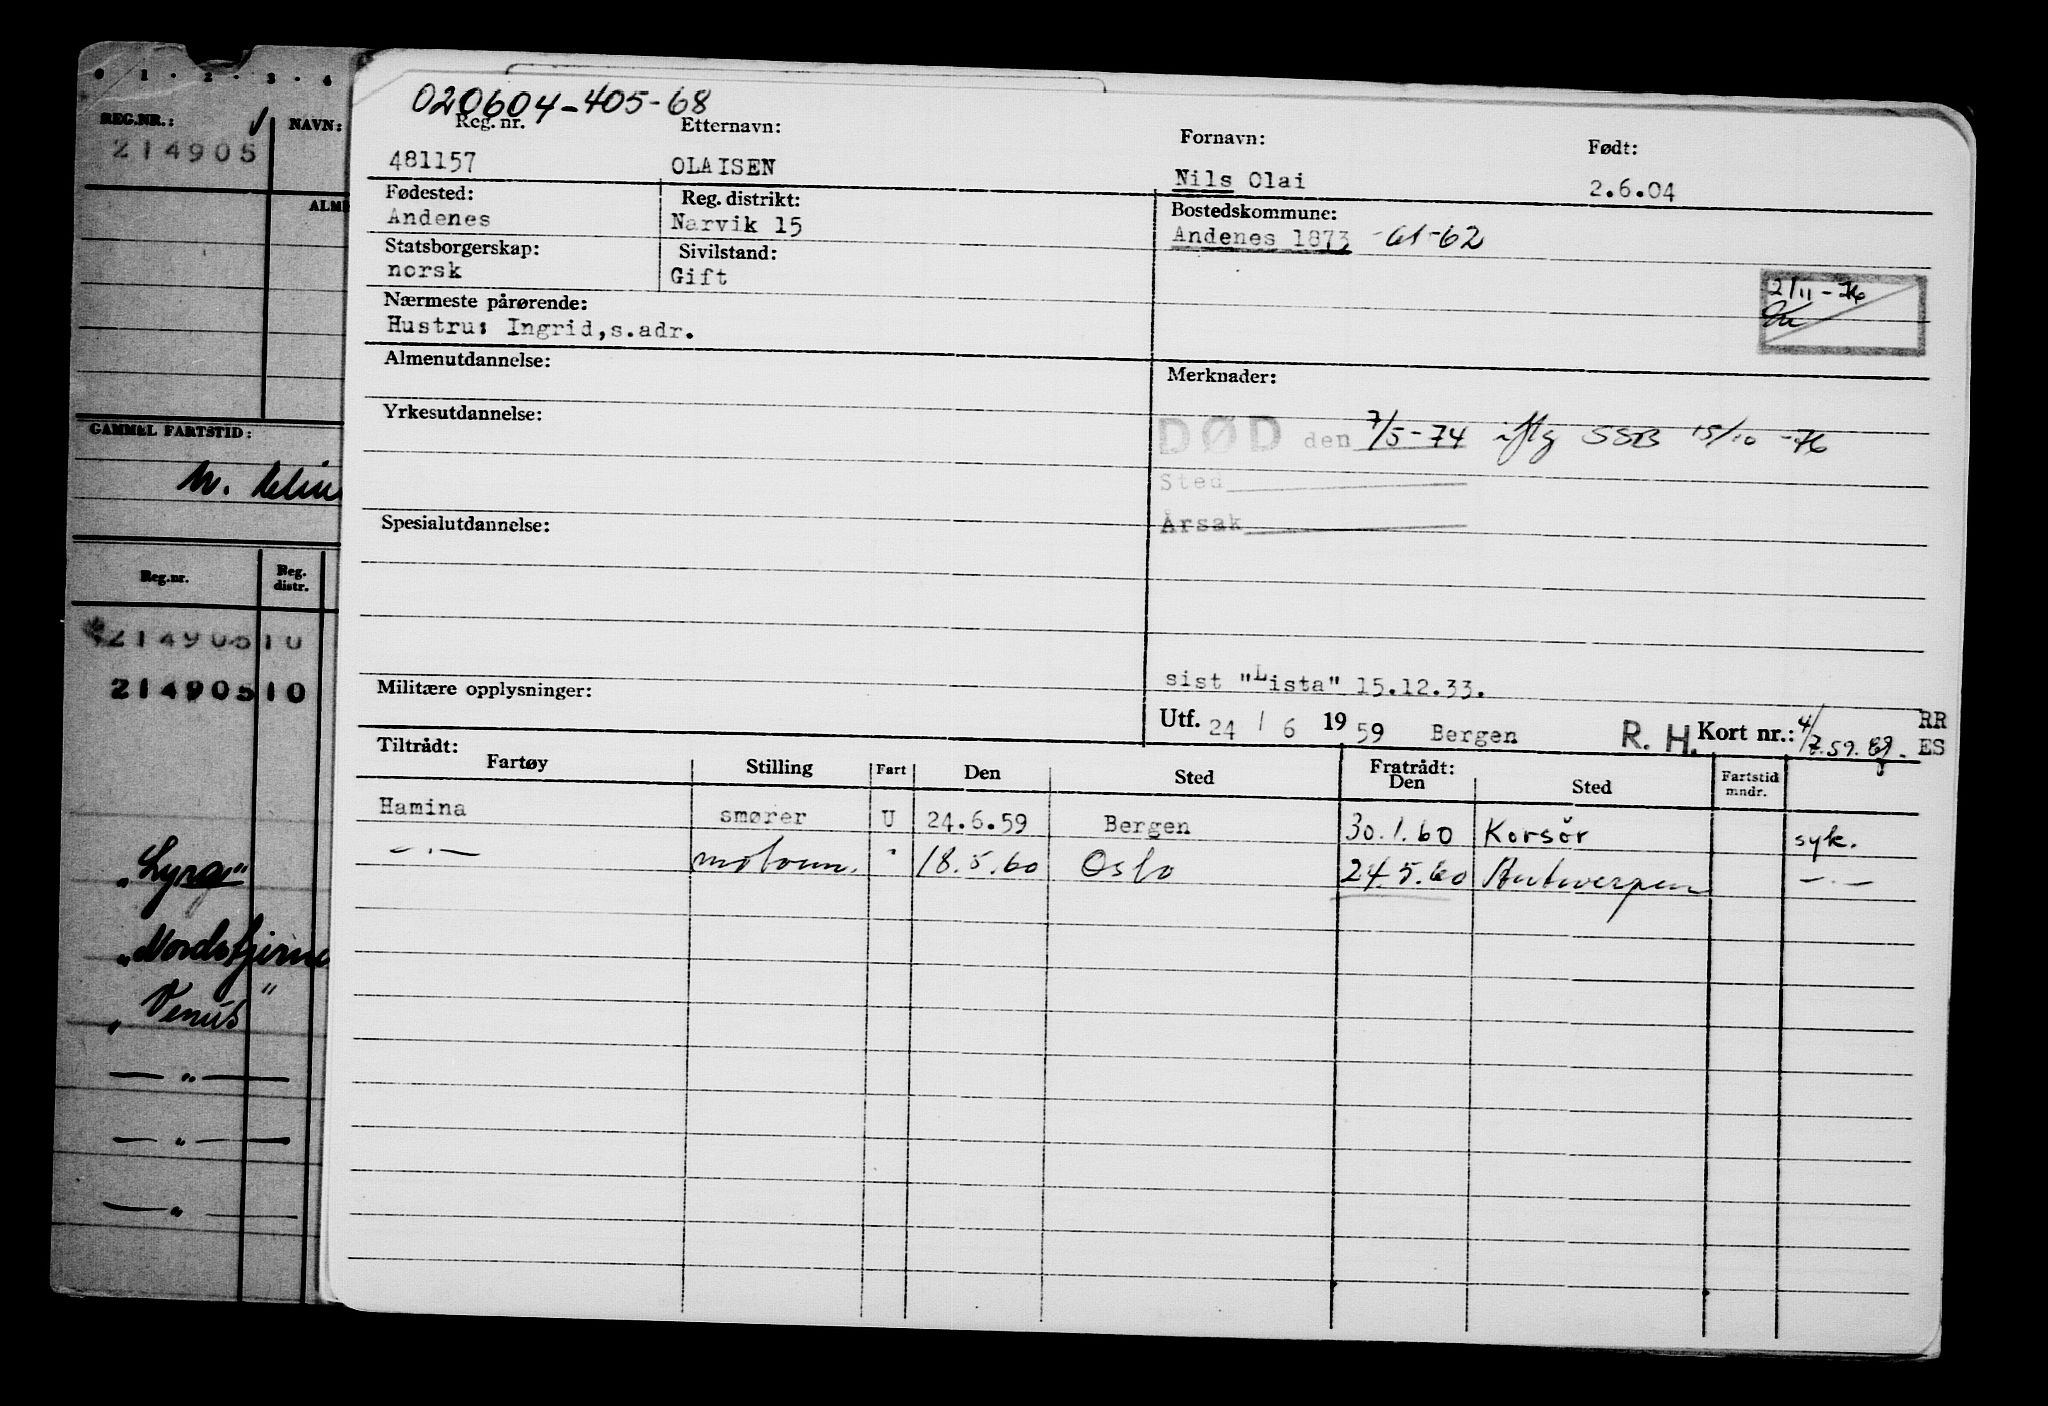 0 1 · 2 · 3 · 4
REG.NR.: NAVN:
214905
ALME
GAMMEL FARTSTID:
Reg.nr. Reg. distr.
21490510
21490510
„Lyra"
„Nordstjerne
„Venus"
— „ —
— „ —
— „ —
020604-405-68
Reg. nr. Etternavn: Fornavn: Født:
481157 OLAISEN Nils Olai 2.6.04
Fødested: Reg. distrikt: Bostedskommune:
Andenes Narvik 15 Andenes 1873 -61-62
Statsborgerskap: Sivilstand:
norsk Gift
2/11-76
Nærmeste pårørende:
Hustru: Ingrid,s.adr.
Almenutdannelse: Merknader:
Yrkesutdannelse:
DØD den 7/5-74 iflg SSB 15/10-76
Sted
Årsak
Spesialutdannelse:
sist "Lista" 15.12.33.
Militære opplysninger:
Utf. 24 / 6 1959 Bergen R. H. Kort nr.: 4/7.59. RR ES
Tiltrådt: Fratrådt:
Fartøy Stilling Fart Den Sted Den Sted Fartstid mndr.
Hamina smører U 24.6.59 Bergen 30.1.60 Korsör syk.
— . — motorm. " 18.5.60 Oslo 24.5.60 Antwerpen — . —